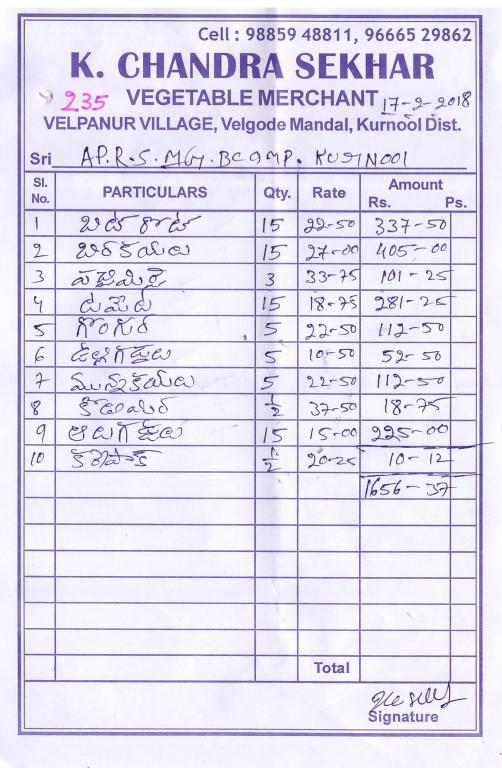 Cell : 98859 48811, 96665 29862
K. CHANDRA SEKHAR
235 VEGETABLE MERCHANT 17-2-2018
VELPANUR VILLAGE, Velgode Mandal, Kurnool Dist.
Sri A.P.R.S. KURNOOL
Sl. No. PARTICULARS Qty. Rate Amount Rs. Ps.
1 15 22-50 337-50
2 బీరకాయలు 15 27-00 405-00
3 పచ్చిమిర్చి 3 33-75 101-25
4 టమోట 15 18-75 281-25
5 గోంగుర 5 22-50 112-50
6 ఉల్లిగడ్డలు 5 10-50 52-50
7 మునక్కాయలు 5 22-50 112-50
8 ½ 37-50 18-75
9 ఆలుగడ్డలు 15 15-00 225-00
10 కరేపాక్ ½ 20-25 10-12
1656-37
Total
Signature